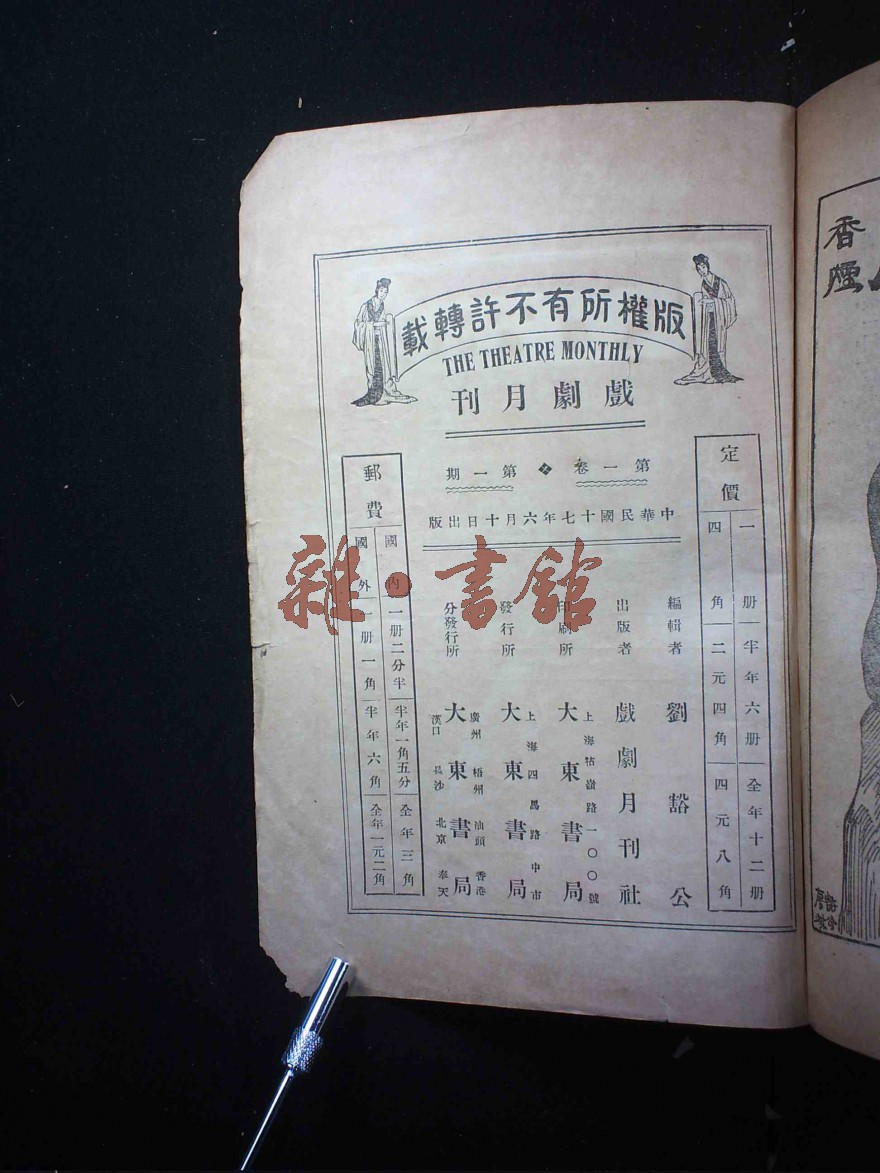 版權所有不許轉載
THE THEATRE MONTHLY
戲劇月刊
第一卷 第一期
中華民國十七年六月十日出版
定價
一册 半年六册 全年十二册
四角 二元四角 四元八角
編輯者 劉豁公
出版者 戲劇月刊社
印刷所 上海牯嶺路一〇〇號 大東書局
發行所 上海四馬路中市 大東書局
分發行所 廣州 梧州 汕頭 香港 大東書局 漢口 長沙 北京 奉天
郵費
國內 一册二分半 半年一角五分 全年三角
國外 一册一角 半年六角 全年一元二角
雜·書館
香煙